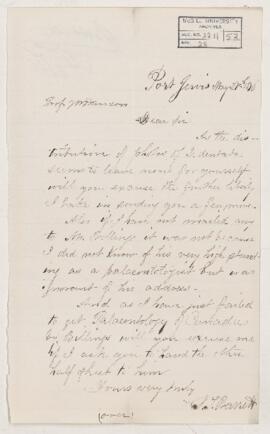 McGILL UNIVERSITY
ARCHIVES
ACC. NO. 2211 52
REF. 28
Port Jervis May 28th
Prof J W Dawson
Dear Sir
As the dis-
tribution of of
seems to leave room for yourself
will you excuse the further liberty
I take in sending you a fragment.
Also if I have not mailed any
to Mr Billings it was not because
I did not know of his very high stand-
ing as a palaeontologist but was
ignorant of his address.
And as I have just failed
to get Palaeontology of Canada
by Billings will you excuse me
if I ask you to hand the other
half sheet to him
Yours very truly
S. T. Barrett
(over)